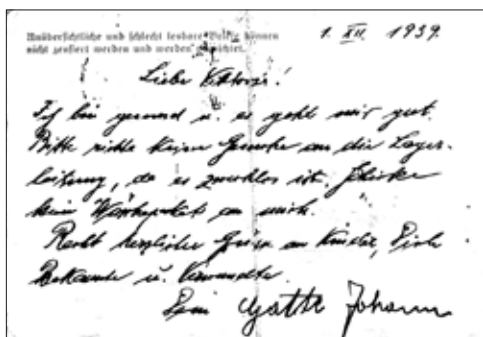 Unübersichtliche und schlecht lesbare Briefe können
nicht zensiert werden und werden vernichtet.
1. XII. 1939.
Liebe Viktoria!
Ich bin gesund u. es geht mir gut.
Bitte richte keinen Gesuche an die Lager-
leitung, da es zwecklos ist. Schicke
kein Wäschepaket an mich.
Recht herzliche Grüsse an Kinder, Dich
Bekannte u. Verwandte.
Dein Gatte Johann